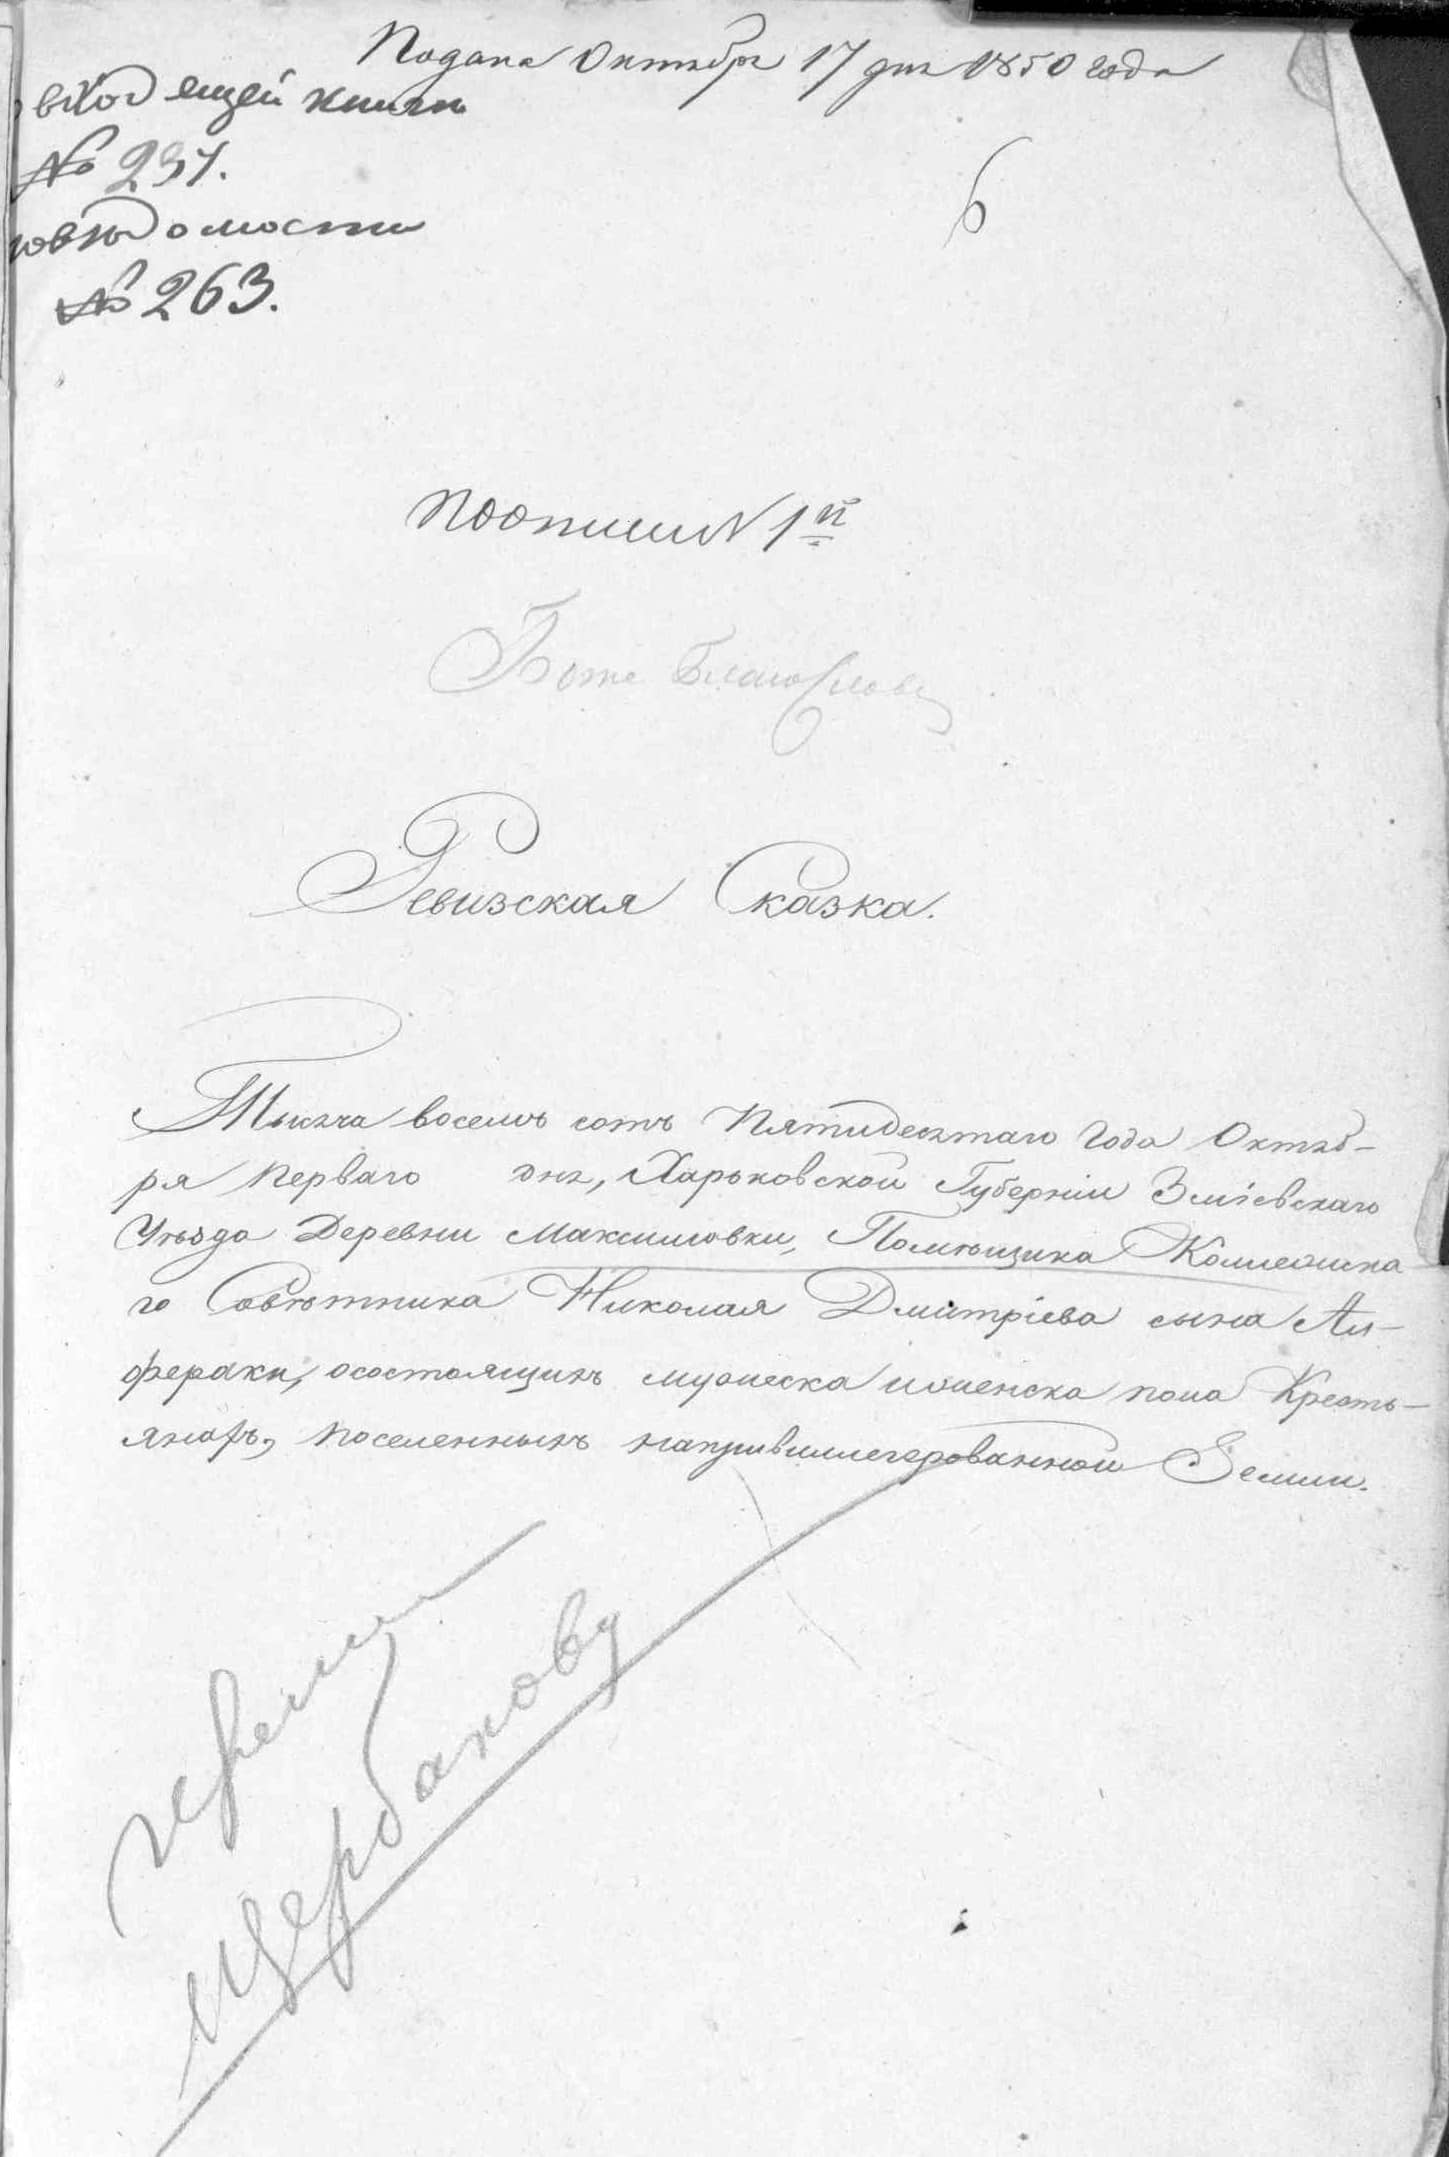 Подана Октября 17 дня 1850 года
входящей книги
№ 237.
ведомости
№ 263.
6
По описи N 1й
Боже Благослови
Ревизская Сказка.
Тысяча восемь сотъ Пятидесятаго Года Октяб-
ря Перваго дня, Харьковской Губерніи Зміевскаго
Уѣзда Деревни Максимовки, Помѣщика Коллежска
го Совѣтника Николая Дмитріева сына Ал-
фераки, о состоящихъ мужеска и женска пола Кресть-
янахъ, поселенныхъ на привиллегерованной Земли.
Щербакову